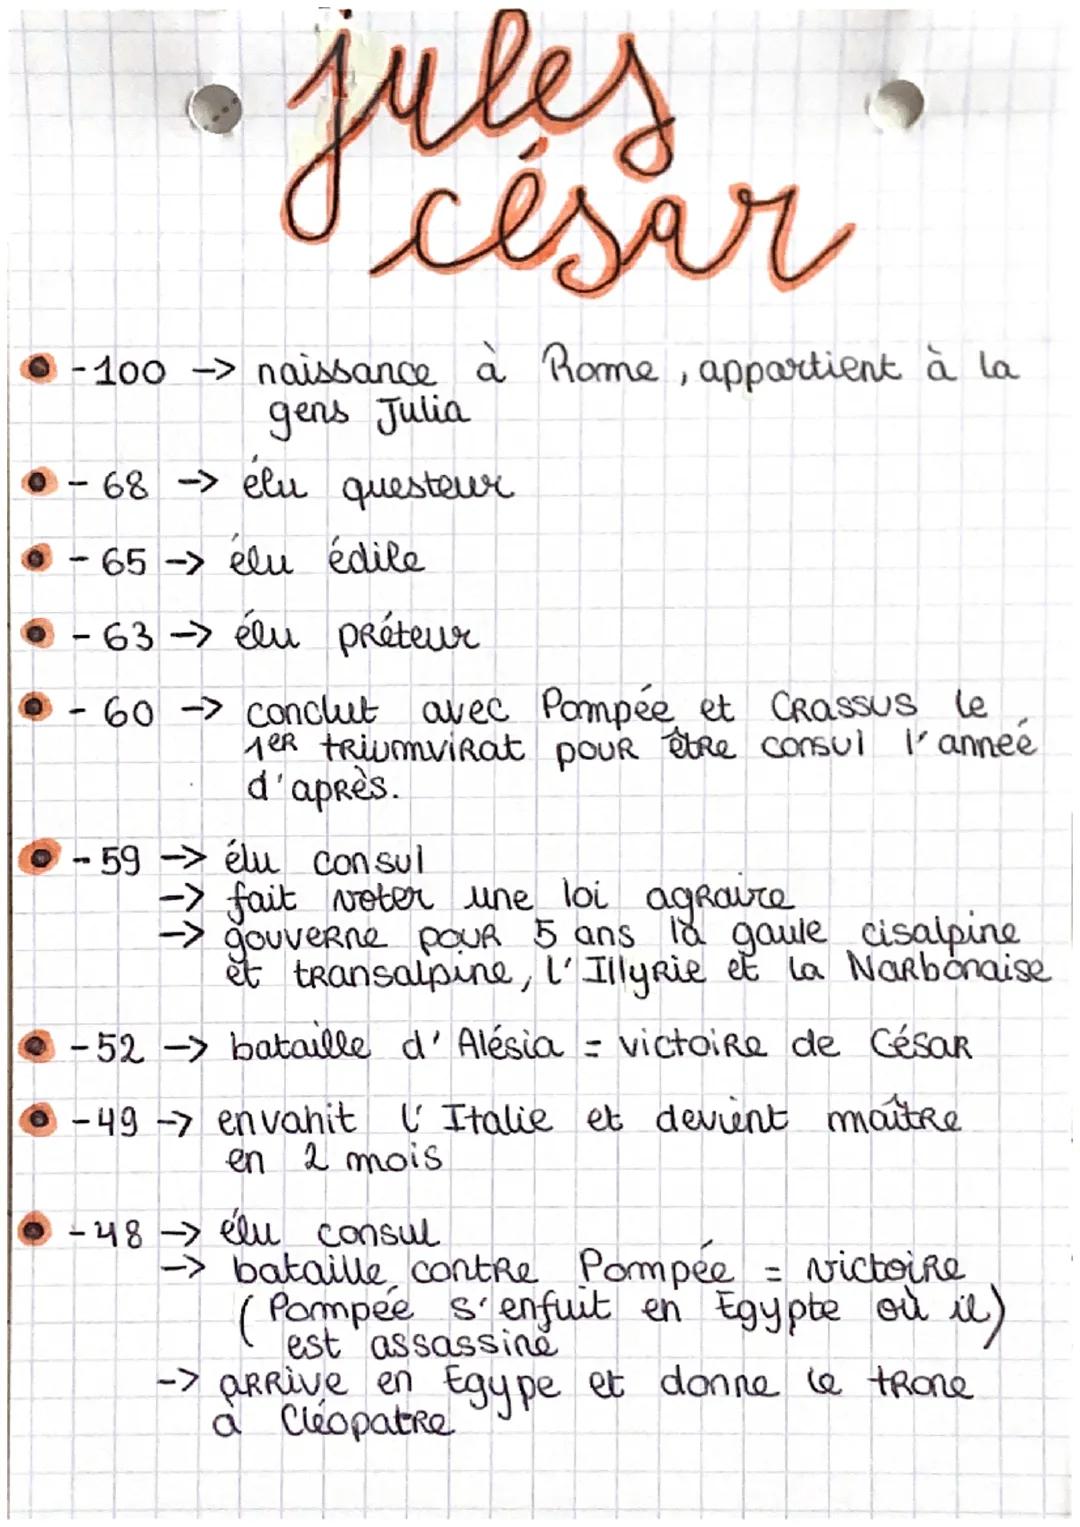 jules
césar
-100 -> naissance à Rome, appartient à la
gens Julia
- 68 -> élu questeur
- 65 -> élu édile
- 63 -> élu préteur
- 60 -> conclut avec Pompée et Crassus le
1er triumvirat pour être consul l'année
d'après.
- 59 -> élu consul
-> fait voter une loi agraire
-> gouverne pour 5 ans la gaule cisalpine
et transalpine, l'Illyrie et la Narbonaise
-52 -> bataille d'Alésia = victoire de César
-49 -> envahit l'Italie et devient maître
en 2 mois
-48 -> élu consul
-> bataille contre Pompée = victoire
(Pompée s'enfuit en Egypte où il)
est assassiné
-> arrive en Egype et donne le trone
à Cléopatre